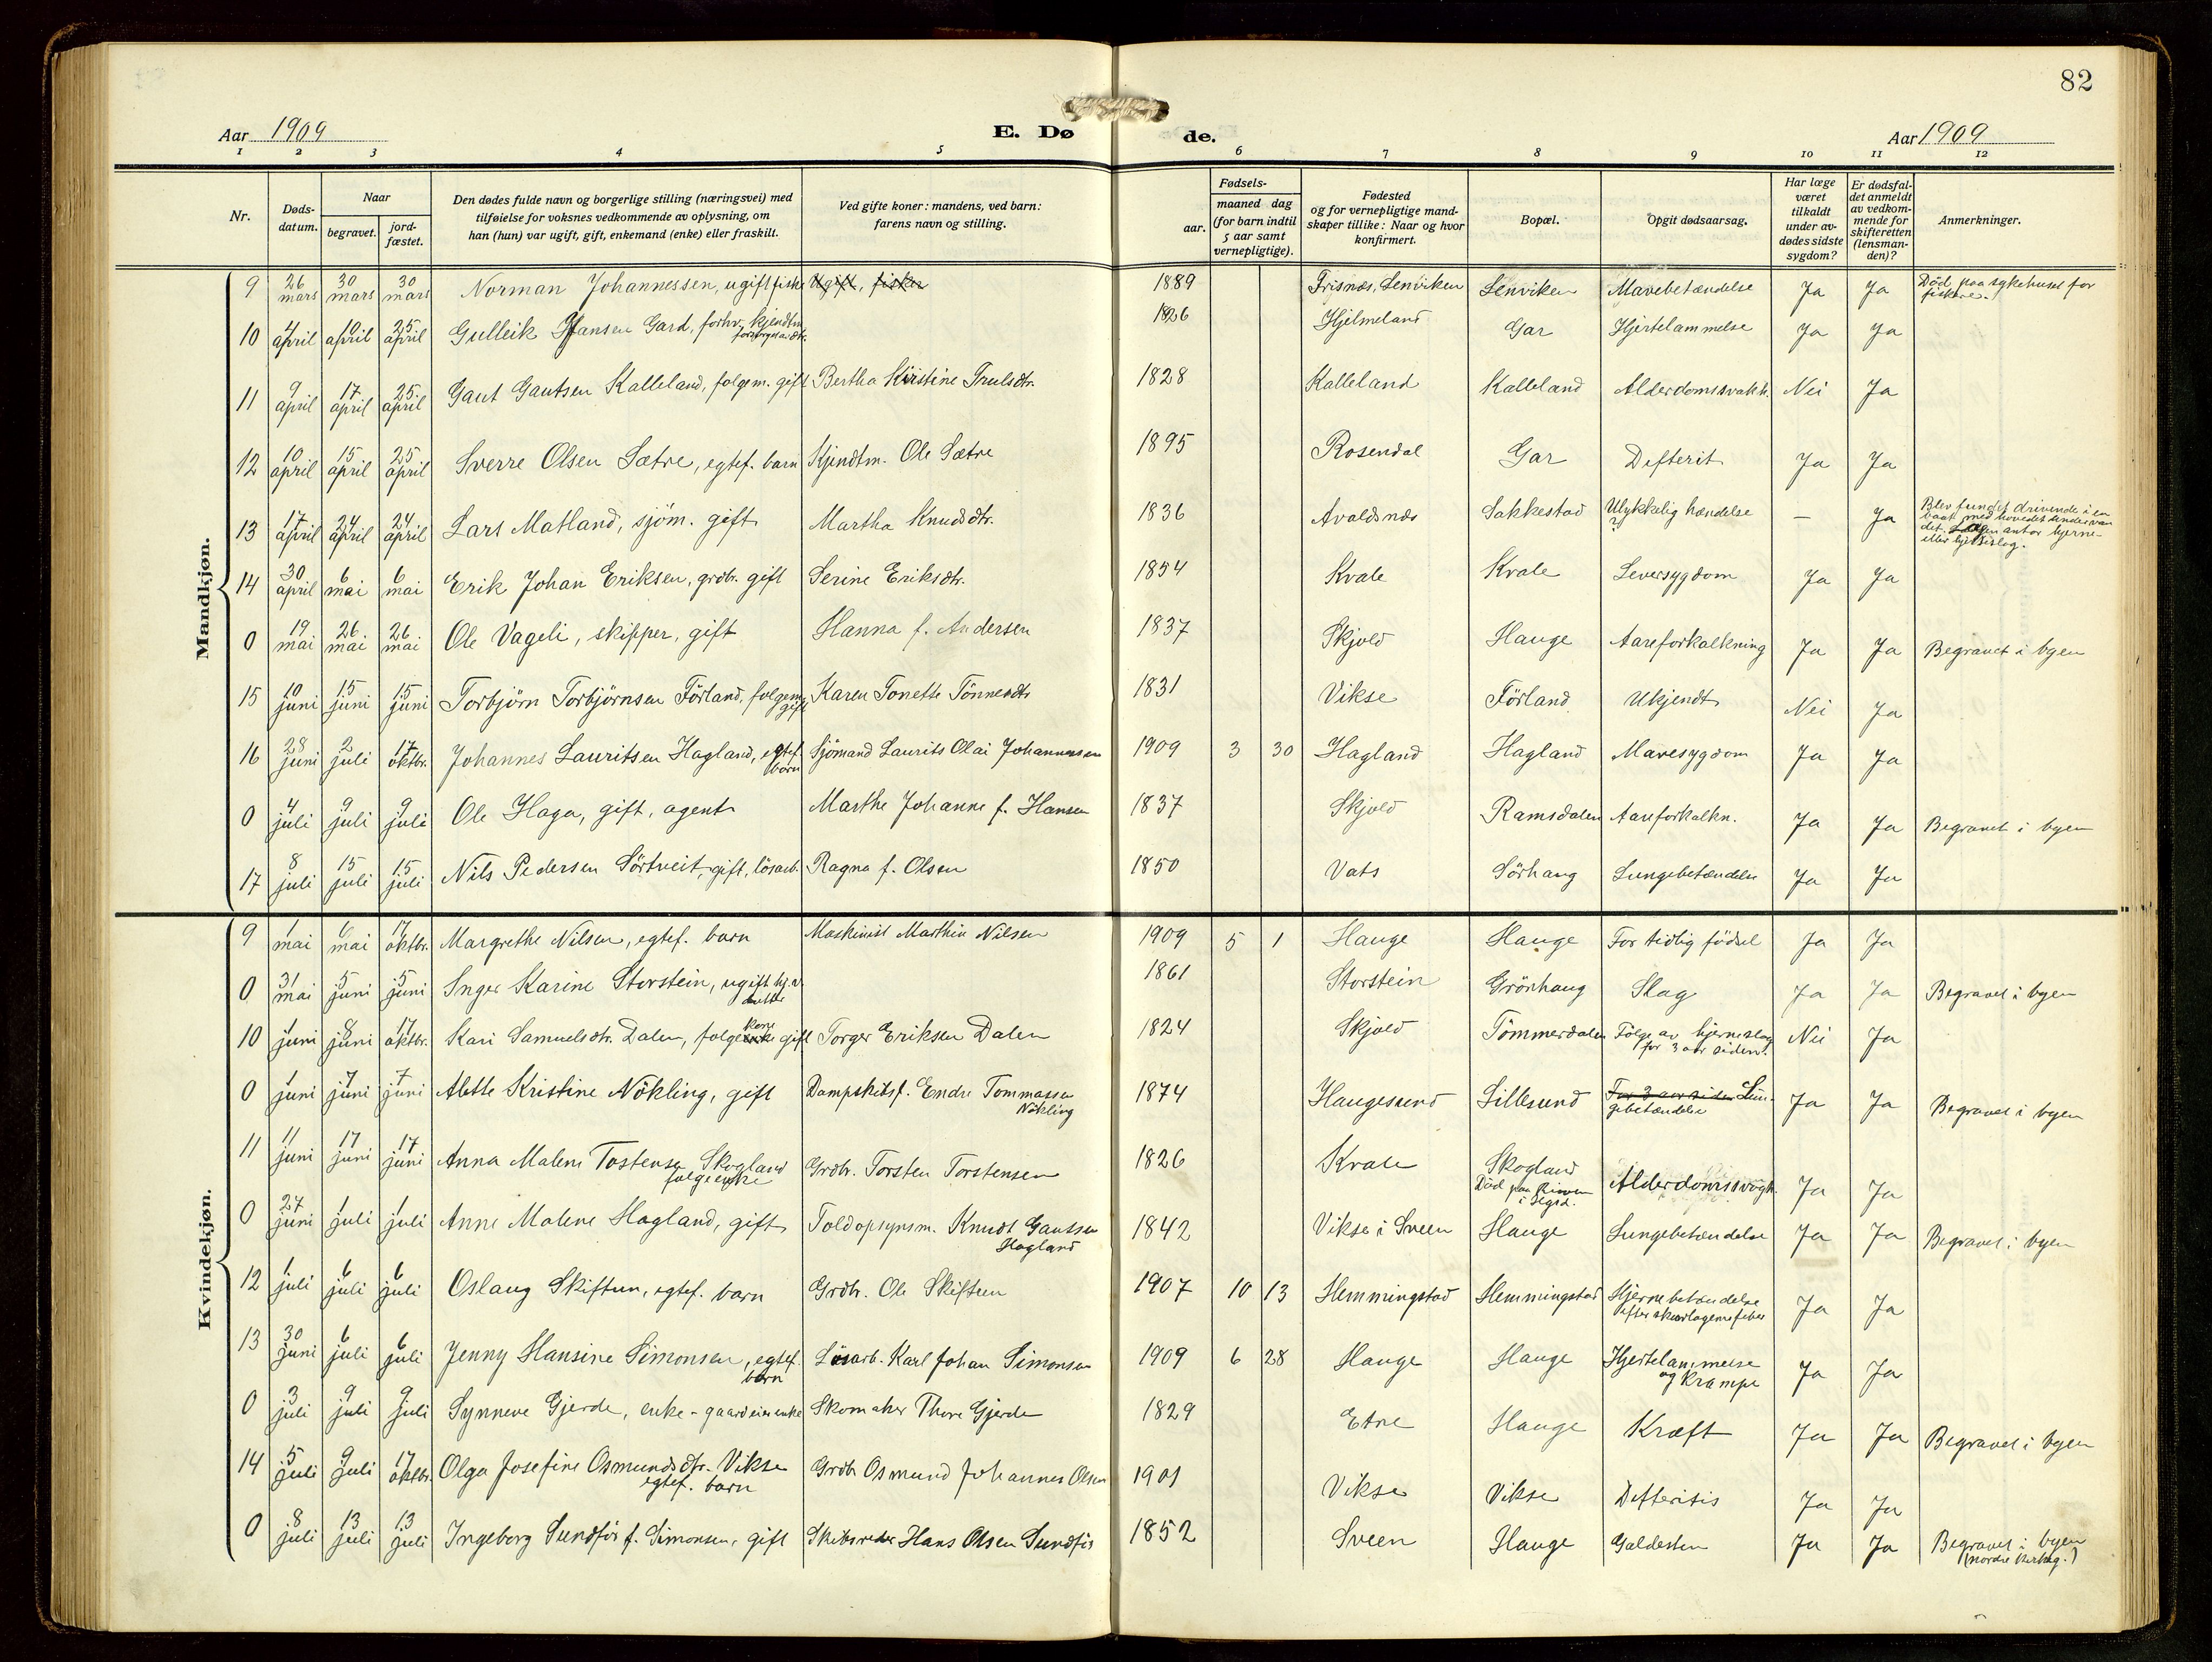 82
Aar 1909
E. Dø
de.
Aar 1909
1 2 3 4 5 6 7 8 9 10 11 12
Nr.
Døds-
datum.
Naar
begravet.
jord-
fæstet.
Den dødes fulde navn og borgerlige stilling (næringsvei) med
tilføielse for voksnes vedkommende av oplysning, om
han (hun) var ugift, gift, enkemand (enke) eller fraskilt.
Ved gifte koner: mandens, ved barn:
farens navn og stilling.
Fødsels-
aar.
maaned dag
(for barn indtil
5 aar samt
vernepligtige).
Fødested
og for vernepligtige mand-
skaper tillike: Naar og hvor
konfirmert.
Bopæl.
Opgit dødsaarsag.
Har læge
været
tilkaldt
under av-
dødes sidste
sygdom?
Er dødsfal-
det anmeldt
av vedkom-
mende for
skifteretten
(lensman-
den)?
Anmerkninger.
Mandkjøn.
9 26 mars 30 mars 30 mars Norman Johannessen, ugift fisker Ugift, fisker 1889 Trisnæs, Lenviken Lenviken Mavebetændelse Ja Ja Død paa sykehuset for
fiskere.
10 4 april 10 april 25 april Gulleik Hansen Gard, forhv. kjendtm. 1826 Hjelmeland Gar Hjertelammelse Ja Ja
11 9 april 17 april 25 april Gaut Gautsen Kalleland, folgem. gift Bertha Kirstine Trulsdtr. 1828 Kalleland Kalleland Alderdomssvakh. Nei Ja
12 10 april 15 april 25 april Sverre Olsen Sætre, egtef. barn Kjendtm. Ole Sætre 1895 Rosendal Gar Defterit Ja Ja
13 17 april 24 april 24 april Lars Matland, sjöm. gift Martha Knudsdtr. 1836 Avaldsnæs Sakkestad Ulykkelig hændelse – Ja Blev fundet drivende i en
baat med hovedet under van
det. Lægen antar hjerne-
eller hjerteslag.
14 30 april 6 mai 6 mai Erik Johan Eriksen, grdbr. gift Serine Eriksdtr. 1854 Kvale Kvale Leversygdom Ja Ja
0 19 mai 26 mai 26 mai Ole Vageli, skipper, gift Hanna f. Andersen 1837 Skjold Hauge Aareforkalkning Ja Ja Begravet i byen
15 10 juni 15 juni 15 juni Torbjörn Torbjörnsen Förland, folgem.
gift Karen Tonette Tönnesdtr 1831 Vikse Förland Ukjendt Nei Ja
16 28 juni 2 juli 17 oktbr. Johannes Lauritsen Hagland, egtef.
barn Sjömand Laurits Olai Johannessen 1909 3 30 Hagland Hagland Mavesygdom Ja Ja
0 4 juli 9 juli 9 juli Ole Haga, gift, agent Marthe Johanne f. Hansen 1837 Skjold Ramsdalen Aareforkalkn. Ja Ja Begravet i byen
17 8 juli 15 juli 15 juli Nils Pedersen Sörtveit, gift, lösarb. Ragna f. Olsen 1850 Vats Sörhaug Lungebetændelse Ja Ja
Kvindekjøn.
9 1 mai 6 mai 17 oktbr. Margrethe Nilsen, egtef. barn Maskinist Marthin Nilsen 1909 5 1 Hauge Hauge For tidlig födsel Ja Ja
0 31 mai 5 juni 5 juni Inger Karine Storstein, ugift 1861 Storstein Grönhaug Slag Ja Ja Begravet i byen
10 1 juni 8 juni 17 oktbr. Kari Samuelsdtr. Dalen, folgekone gift Torger Eriksen Dalen 1824 Skjold Tömmerdalen Følge av hjerneslag
for 3 aar siden. Nei Ja
0 1 juni 7 juni 7 juni Alette Kristine Nökling, gift Dampskibsf. Endre Tommassen
Nökling 1874 Haugesund Lillesund For 3 aar siden Lun-
gebetændelse Ja Ja Begravet i byen
11 11 juni 17 juni 17 juni Anna Malene Tostensen Skogland
folgeenke Grdbr. Torsten Torstensen 1826 Kvale Skogland
Död paa
i Alderdomssvagh. Ja Ja
0 27 juni 1 juli 1 juli Anne Malene Hagland, gift Toldopsynsm. Knudt Gautsen
Hagland 1842 Vikse i Sveen Hauge Lungebetændelse Ja Ja Begravet i byen
12 1 juli 6 juli 6 juli Oslaug Skiftun, egtef. barn Grdbr. Ole Skiftun 1907 10 13 Hemmingstad Hemmingstad Hjernebetændelse
efter skarlagensfeber Ja Ja
13 30 juni 6 juli 6 juli Jenny Hansine Simonsen, egtef.
barn Lösarb. Karl Johan Simonsen 1909 6 28 Hauge Hauge Hjertelammelse
og Krampe Ja Ja
0 3 juli 9 juli 9 juli Synneve Gjerde, enke - gaardeierenke Skomaker Thore Gjerde 1829 Etne Hauge Kræft Ja Ja Begravet i byen
14 5 juli 9 juli 17 oktbr. Olga Josefine Osmundsdtr. Vikse
egtef. barn Grdbr Osmund Johannes Olsen 1901 Vikse Vikse Difteritis Ja Ja
0 8 juli 13 juli 13 juli Ingeborg Sundför f. Simonsen, gift Skibsreder Hans Olsen Sundför 1852 Sveen Hauge Galdesten Ja Ja Begravet i byen
(nordre kirkeg.)